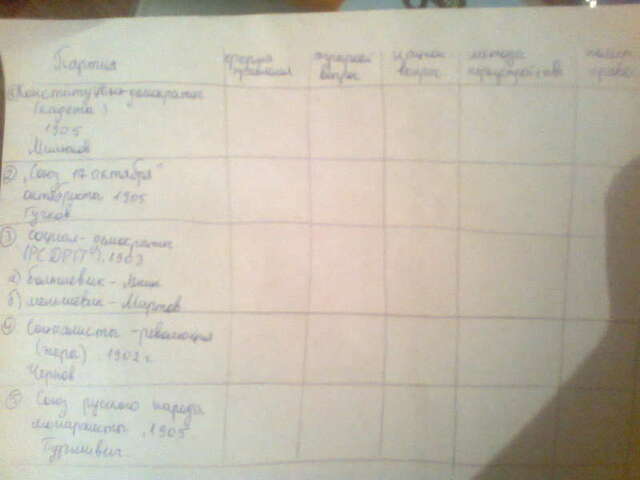 Партия
форма правления
аграрный вопрос
национ. вопрос
методы переустройства
полит. права
① Конституц. демократы
(кадеты)
1905
Милюков
② „Союз 17 октября"
октябристы 1905
Гучков
③ Социал-демократы
(РСДРП). 1903
а) большевик - Ленин
б) меньшевик - Мартов
④ Социалисты - революция
(эсеры). 1902 г.
Чернов
⑤ Союз русского народа
монархисты, 1905